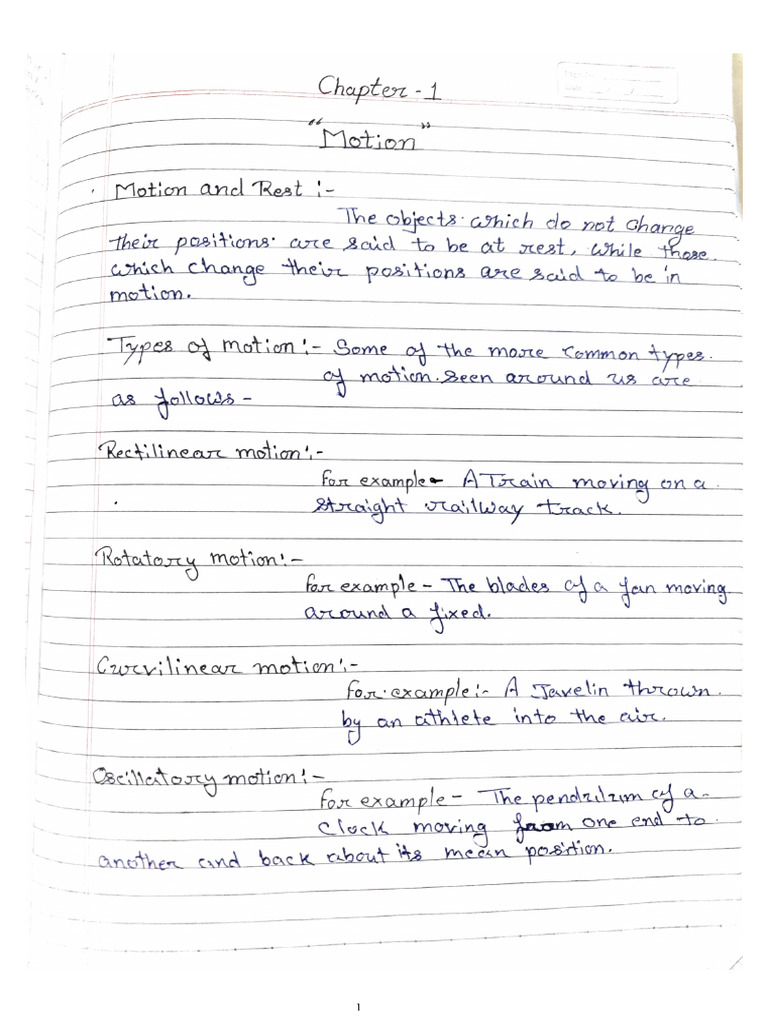 Chapter - 1
"Motion"
Motion and Rest :-
The objects which do not change
their positions are said to be at rest, while those
which change their positions are said to be in
motion.
Types of motion :- Some of the more common types
of motion seen around us are
as follows -
Rectilinear motion :-
for example - A Train moving on a
straight railway track.
Rotatory motion :-
for example - The blades of a fan moving
around a fixed.
Curvilinear motion :-
for example :- A Javelin thrown
by an athlete into the air.
Oscillatory motion :-
for example - The pendulum of a
clock moving from one end to
another and back about its mean position.
1